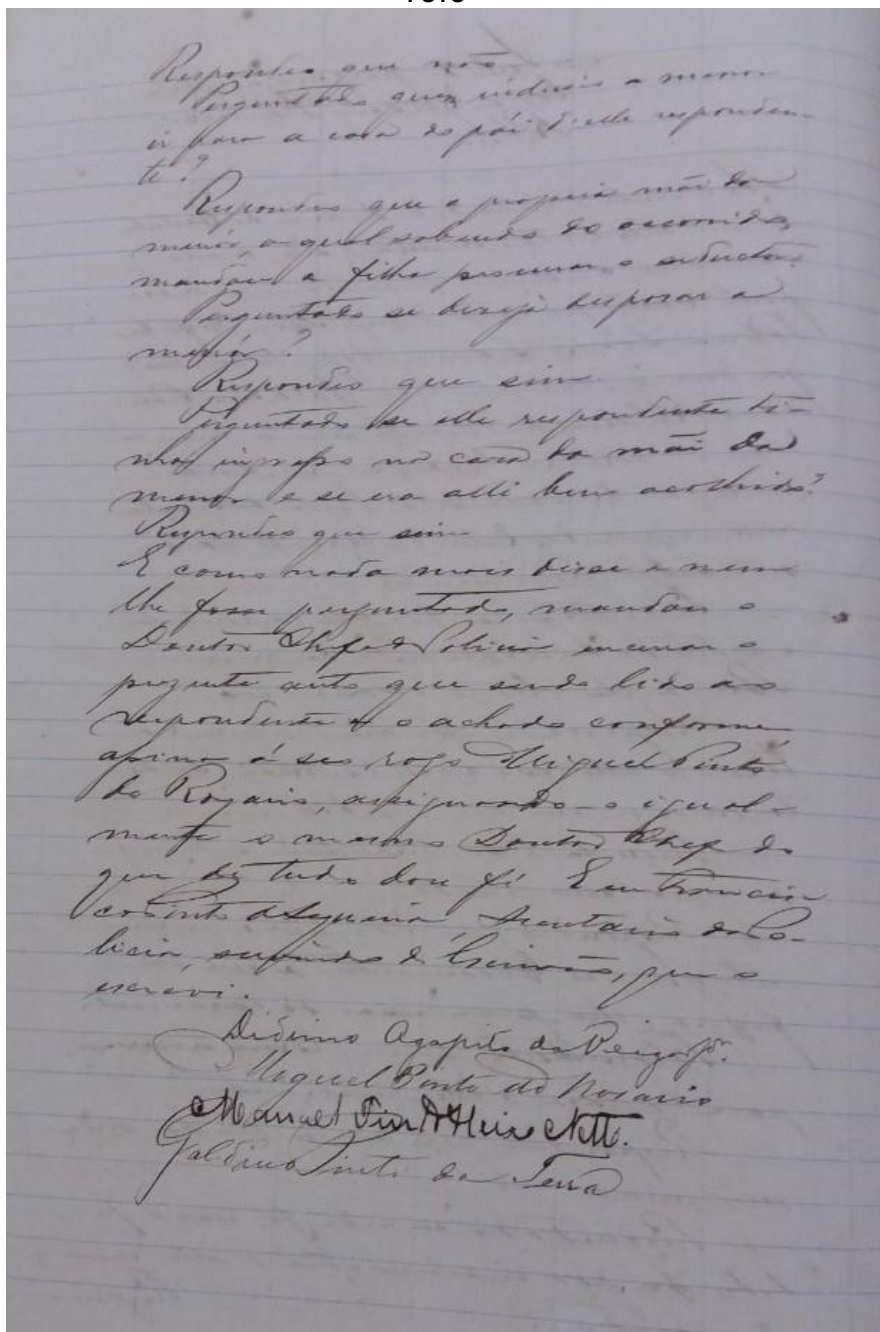 Respondeo que não
Perguntado quem induzio a menor
ir para a casa do pái d'elle responden-
te?
Respondeo que a propria mãi da
menór, a qual sabendo do occorrido,
mandou a filha procurar o seductor.
Perguntado se deseja desposar a
menór?
Respondeo que sim
Perguntado se elle respondente ti-
nha ingresso na casa da mãi da
menor e se era alli bem acolhido?
Respondeo que sim
E como nada mais disse e nem
lhe fosse perguntado, mandou o
Doutor Chefe de Policia encerrar o
prezente auto que sendo lido ao
respondente e o achado conforme
assina á seo rogo Miguel Pinto
do Rozario, assignando-o igual-
mente o mesmo Doutor Chefe do
que de tudo dou fé. E eu Francis-
co Pinto de Siqueira, Secretario da Po-
licia, servindo de Escrivão, que o
escrevi.
Didimo Agapito da Veiga Jor.
Miguel Pinto do Rosario
Manuel Netto.
Galdino Pinto da Terra